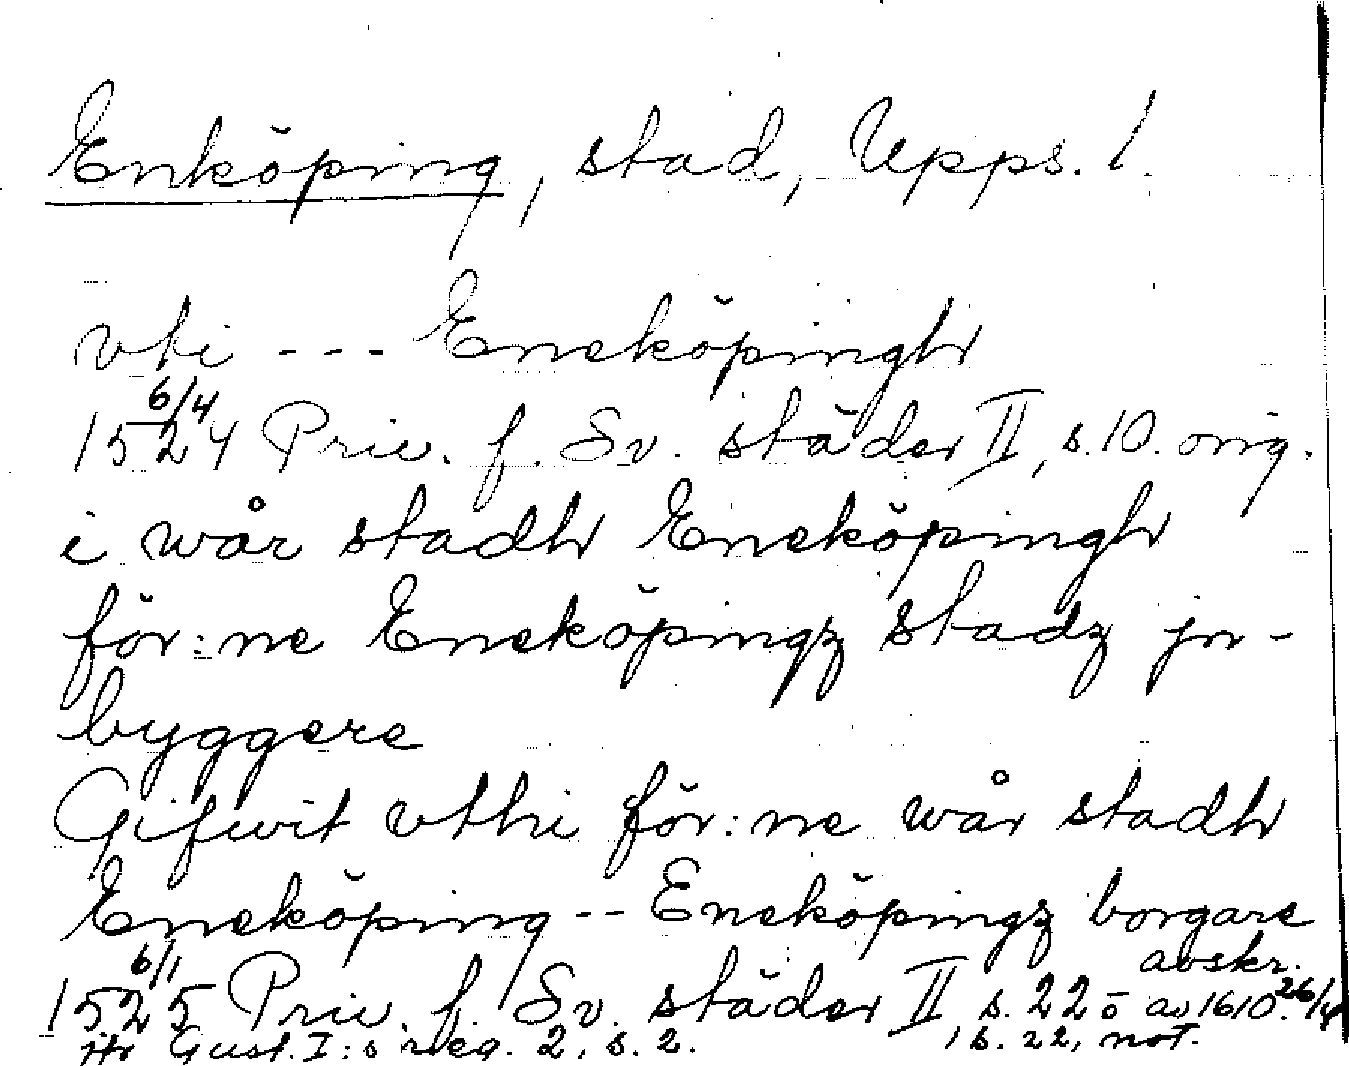 Enköping, stad, Upps. l.
vti --- Eneköpingh
1524 6/4 Priv. f. Sv. städer II, s. 10. orig.
i wår stadh Eneköpingh
för:ne Eneköpingz stadz jn-
byggere
Gifwit vthi för:ne wår stadh
Eneköping -- Eneköpingz borgare
1525 6/1 Priv. f. Sv. städer II s. 22 ō avskr. av 1610. 26/4
Gust. I:s reg. 2, s. 2. , s. 22, not.